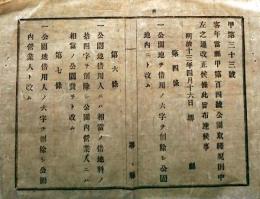 甲第三十三號
客年當縣甲第百四號公園取締規則中
左之通改正候條此旨布達候事
明治十三年四月十六日
第四條
一公園地借用ノ六字ヲ削除シ公園
地內ニ改ム
第六條
一公園地借用人ノ八
拾四字ヲ削除シ公園內營業人ニハ
相當ノ公園費ヲト改ム
第七條
一公園地借用人ノ六字ヲ削除シ公園
內營業人ト改ム